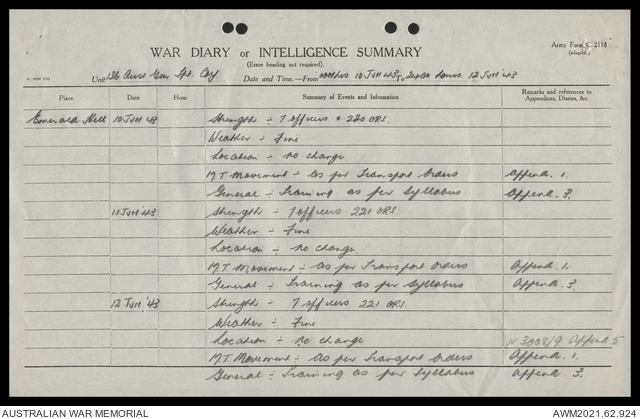 Army Form C. 2118
(adapted.)
WAR DIARY or INTELLIGENCE SUMMARY
(Erase heading not required).
Unit 126 Aust Gen Tpt. Coy Date and Time.—From 0001hrs 10 Jun 43 To 2400 hours 12 Jun '43
Place Date Hour Summary of Events and Information Remarks and references to Appendices, Diaries, &c.
Emerald Hill 10 Jun 43 Strength ÷ 7 officers & 220 ORS.
Weather ÷ Fine
Location ÷ no change
M.T. Movement ÷ as per Transport Orders Append. 1.
General ÷ Training as per Syllabus Append. 3.
11 Jun '43 Strength ÷ 7 officers 221 ORS.
Weather ÷ Fine
Location ÷ no change.
M.T. Movement ÷ as per Transport Orders Append. 1.
General ÷ Training as per Syllabus Append. 3.
12 Jun '43 Strength ÷ 7 officers 221 ORS.
Weather ÷ Fine
Location ÷ no change W 3008/9 Append 5
M.T. Movement ÷ as per Transport Orders Append. 1.
General ÷ Training as per Syllabus Append. 3.
AUSTRALIAN WAR MEMORIAL AWM2021.62.924